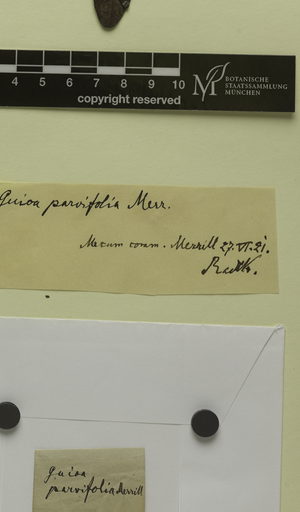 4 5 6 7 8 9 10
copyright reserved
M
BOTANISCHE
STAATSSAMMLUNG
MÜNCHEN
Guioa parvifolia Merr.
Mecum comm. Merrill 27.VI.21.
Radlk.
guioa
parvifolia Merrill